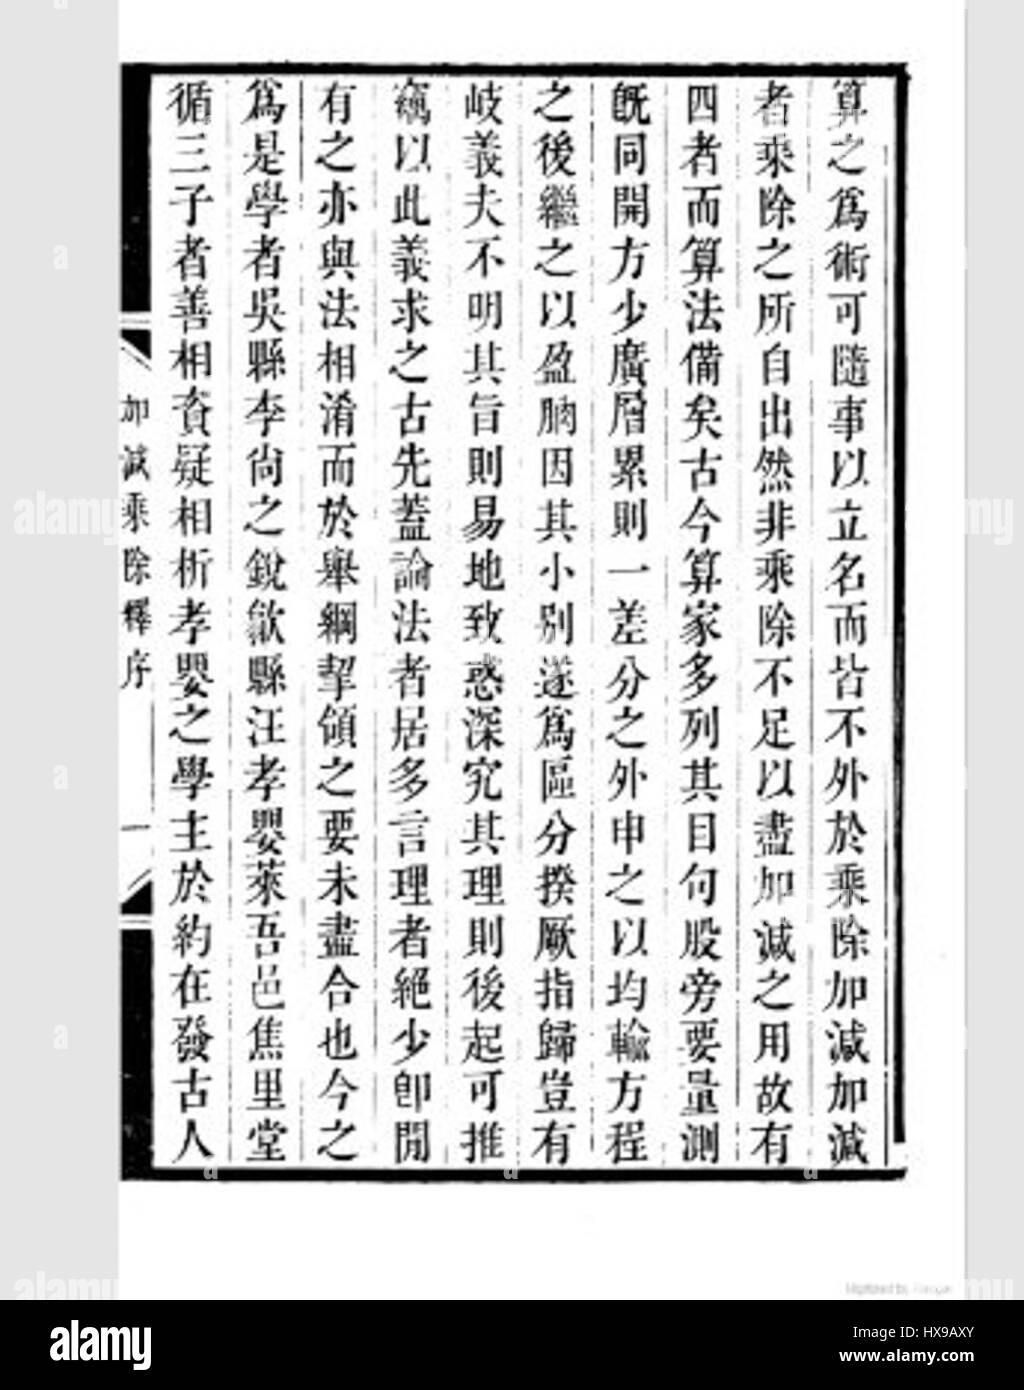 算之爲術可隨事以立名而皆不外於乘除加減加減
者乘除之所自出然非乘除不足以盡加減之用故有
四者而算法備矣古今算家多列其目句股旁要量測
旣同開方少廣層累則一差分之外申之以均輸方程
之後繼之以盈朒因其小別遂爲區分揆厥指歸豈有
岐義夫不明其旨則易地致惑深究其理則後起可推
竊以此義求之古先蓋論法者居多言理者絕少卽閒
有之亦與法相淆而於舉綱挈領之要未盡合也今之
爲是學者吳縣李尙之銳歙縣汪孝嬰萊吾邑焦里堂
循三子者善相資疑相析孝嬰之學主於約在發古人
加減乘除釋序
一
alamy
a
alamy
Image ID: HX9AXY
www.alamy.com